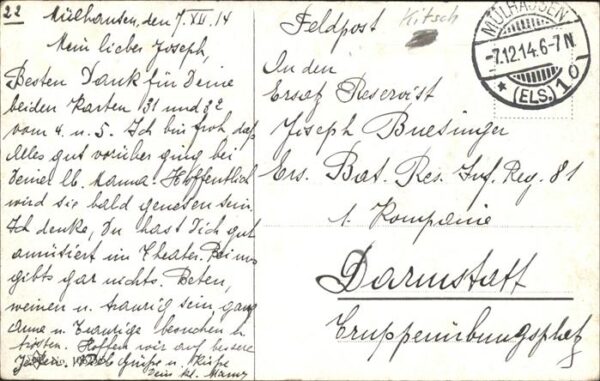 22
Mülhausen, den 7. XII. 14
Mein lieber Joseph,
Besten Dank für Deine
beiden Karten 31 und 32
vom 4. u. 5. Ich bin froh, daß
Alles gut vorüber ging bei
Deiner lb. Mama. Hoffentlich
wird sie bald genesen sein.
Ich denke, Du hast Dich gut
amüsiert im Theater. Bei uns
gibts gar nichts. Beten,
weinen u. traurig sein ganz
Arme u. Traurige besuchen u.
trösten. Hoffen wir auf bessere
Grüße u. Küße
Dein kl.
Feldpost
Kitsch
MÜLHAUSEN
-7.12.14.6-7N
* (ELS.) 10
An den
Ersatz Reservist
Joseph Buesinger
Ers. Bat. Res. Inf. Reg. 81
1. Kompanie
Darmstatt
Truppenübungsplatz